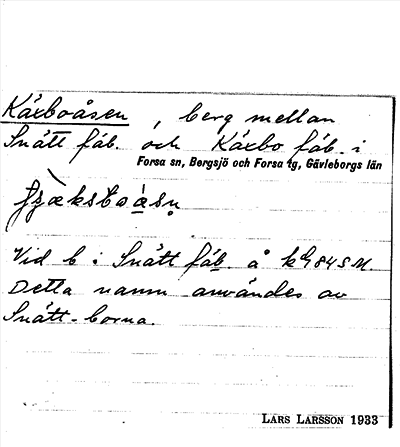 Käxboåsen, berg mellan
Snått fäb. och Käxbo fäb. i
Forsa sn, Bergsjö och Forsa tg, Gävleborgs län
Vid b i Snått fäb. å
Detta namn användes av
Snått-borna.
LARS LARSSON 1933